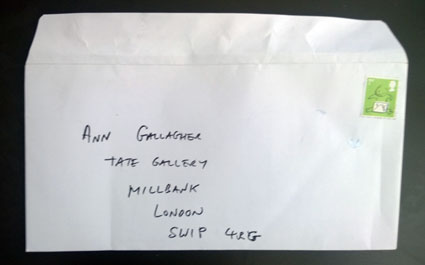 ANN GALLAGHER
TATE GALLERY
MILLBANK
LONDON
SW1P 4RG